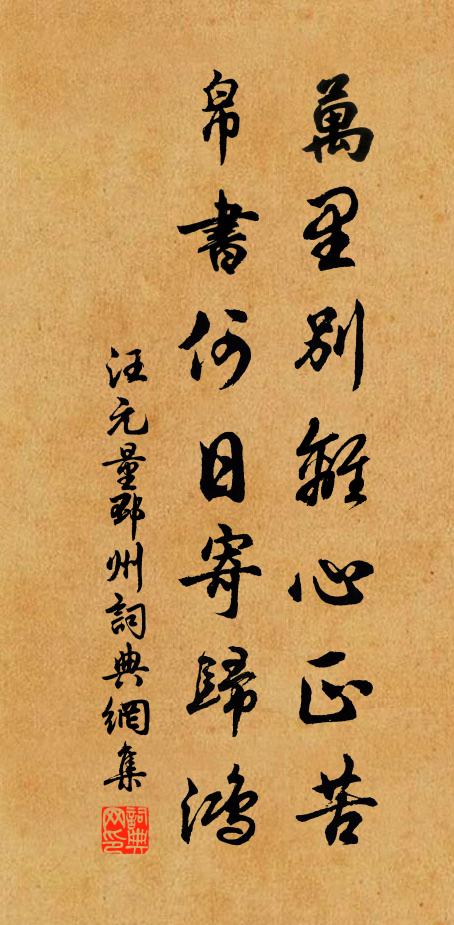 萬里別離心正苦
帛書何日寄歸鴻
汪元量邳州詞典網集
詞典网印